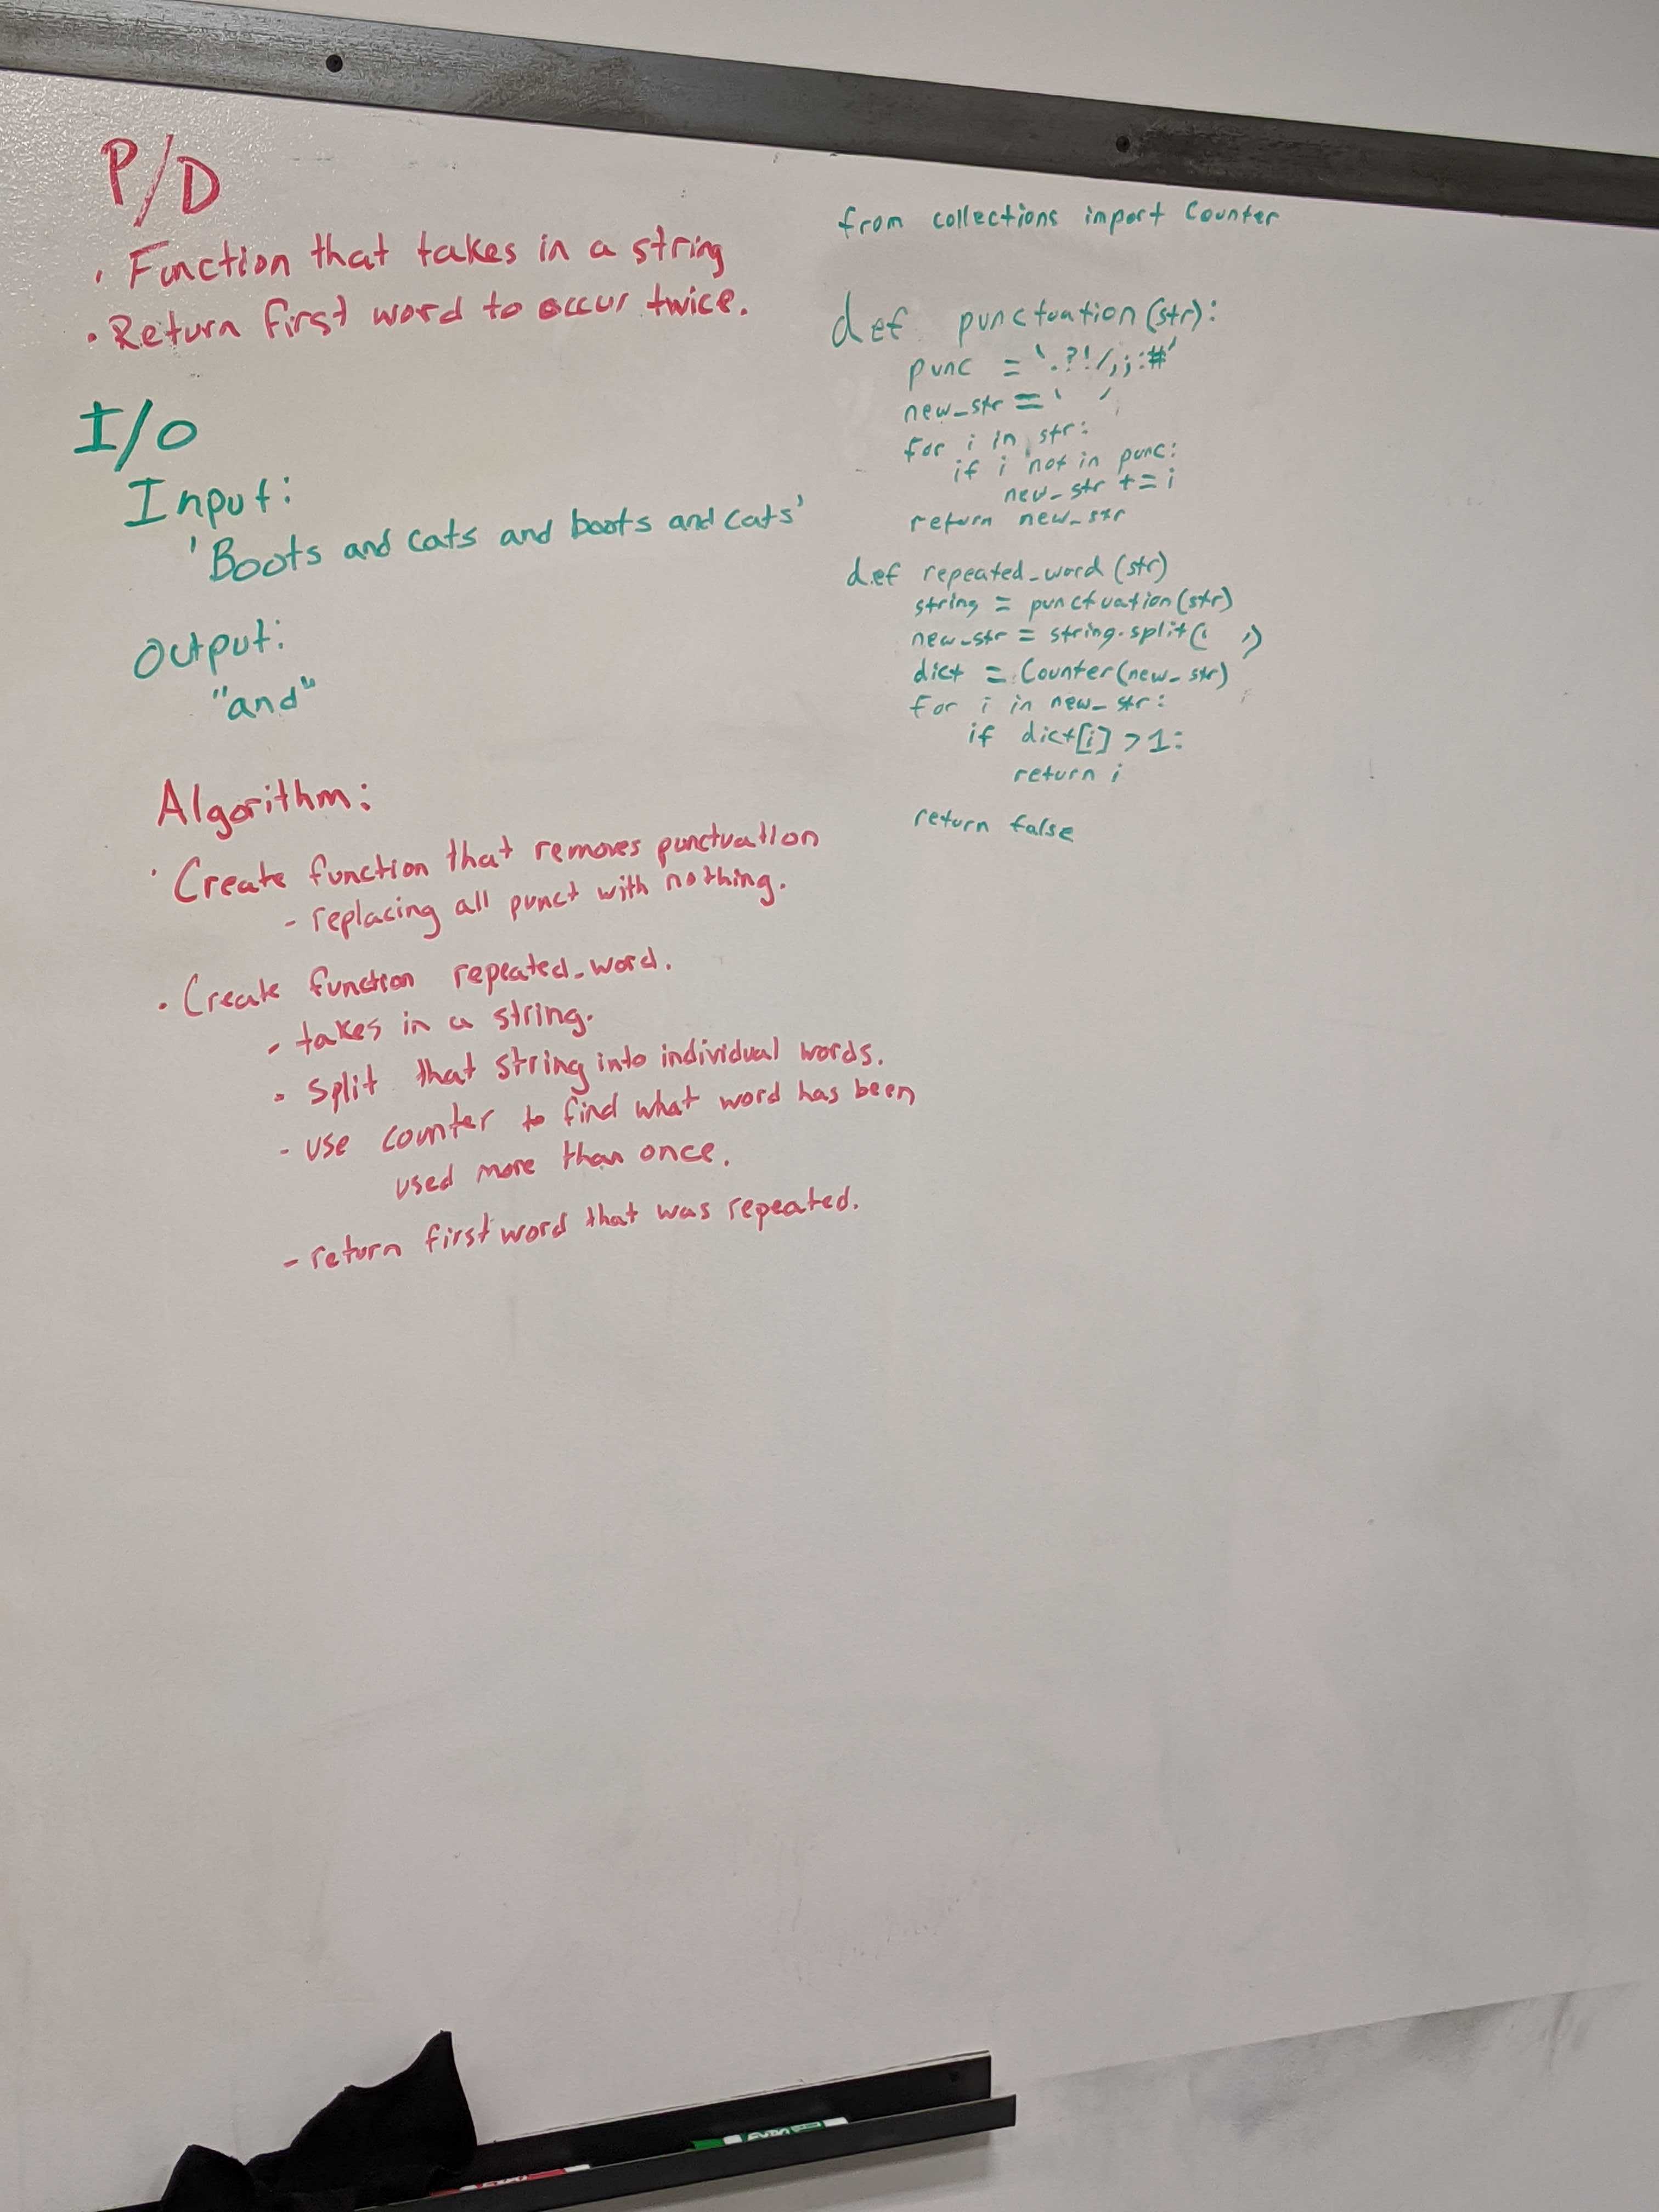 P/D
· Function that takes in a string
· Return first word to occur twice.
I/O
Input:
'Boots and cats and boots and cats'
Output:
"and"
Algorithm:
· Create function that removes punctuation
- replacing all punct with nothing.
· Create function repeated_word.
- takes in a string.
- Split that string into individual words.
- use counter to find what word has been
used more than once.
- return first word that was repeated.
from collections import Counter
def punctuation(str):
punc = '.?!/,;:#'
new_str = ' '
for i in str:
if i not in punc:
new_str += i
return new_str
def repeated_word(str)
string = punctuation(str)
new_str = string.split(' ')
dict = Counter(new_str)
for i in new_str:
if dict[i] > 1:
return i
return false